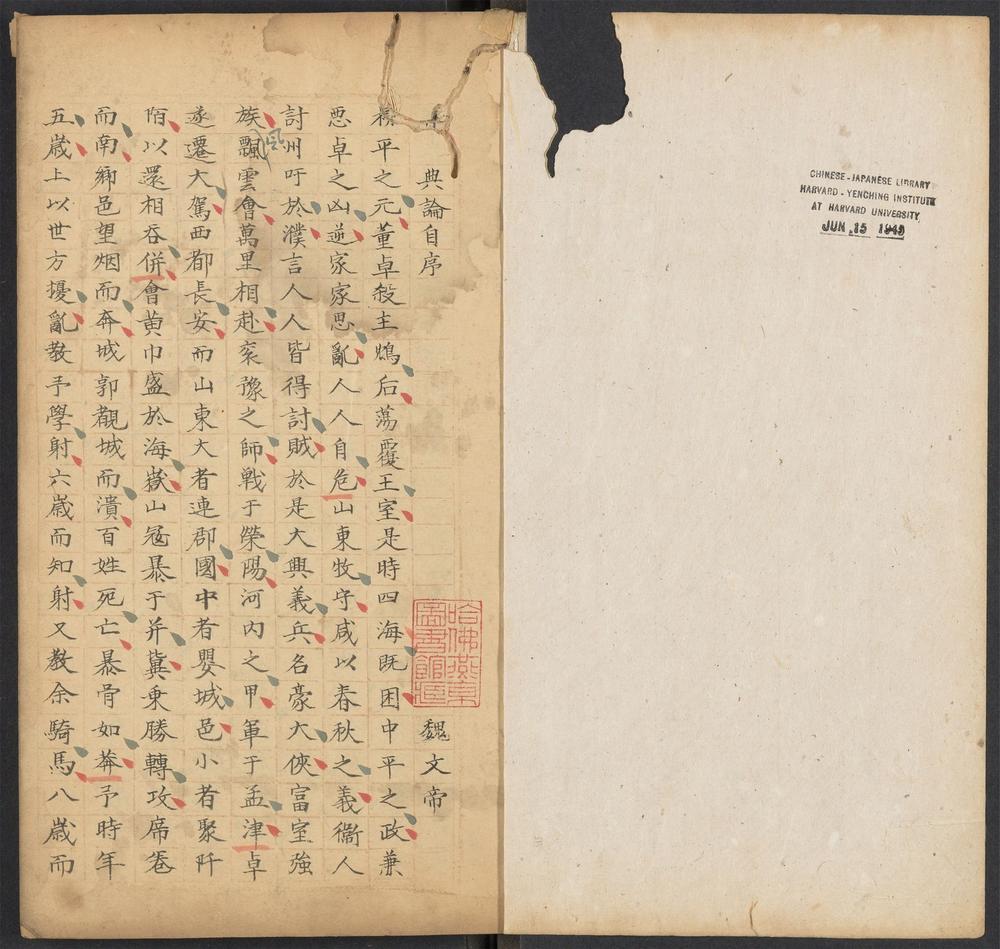 CHINESE-JAPANESE LIBRARY
HARVARD-YENCHING INSTITUTE
AT HARVARD UNIVERSITY
JUN 15 1949
典論自序 魏文帝
哈佛燕京
圖書館
平之元董卓殺主鴆后蕩覆王室是時四海既困中平之政兼
惡卓之凶逆家家思亂人人自危山東牧守咸以春秋之義衞人
討州吁於濮言人人皆得討賊於是大興義兵名豪大俠富室強
族飄雲會萬里相赴兖豫之師戰于榮陽河内之甲軍于孟津卓
風
遂遷大駕西都長安而山東大者連郡國中者嬰城邑小者聚阡
陌以還相吞併會黃巾盛於海嶽山冦暴于并冀乘勝轉攻席卷
而南鄉邑望烟而奔城郭覩城而潰百姓死亡暴骨如莾予時年
五歲上以世方擾亂教予學射六歲而知射又教余騎馬八歲而